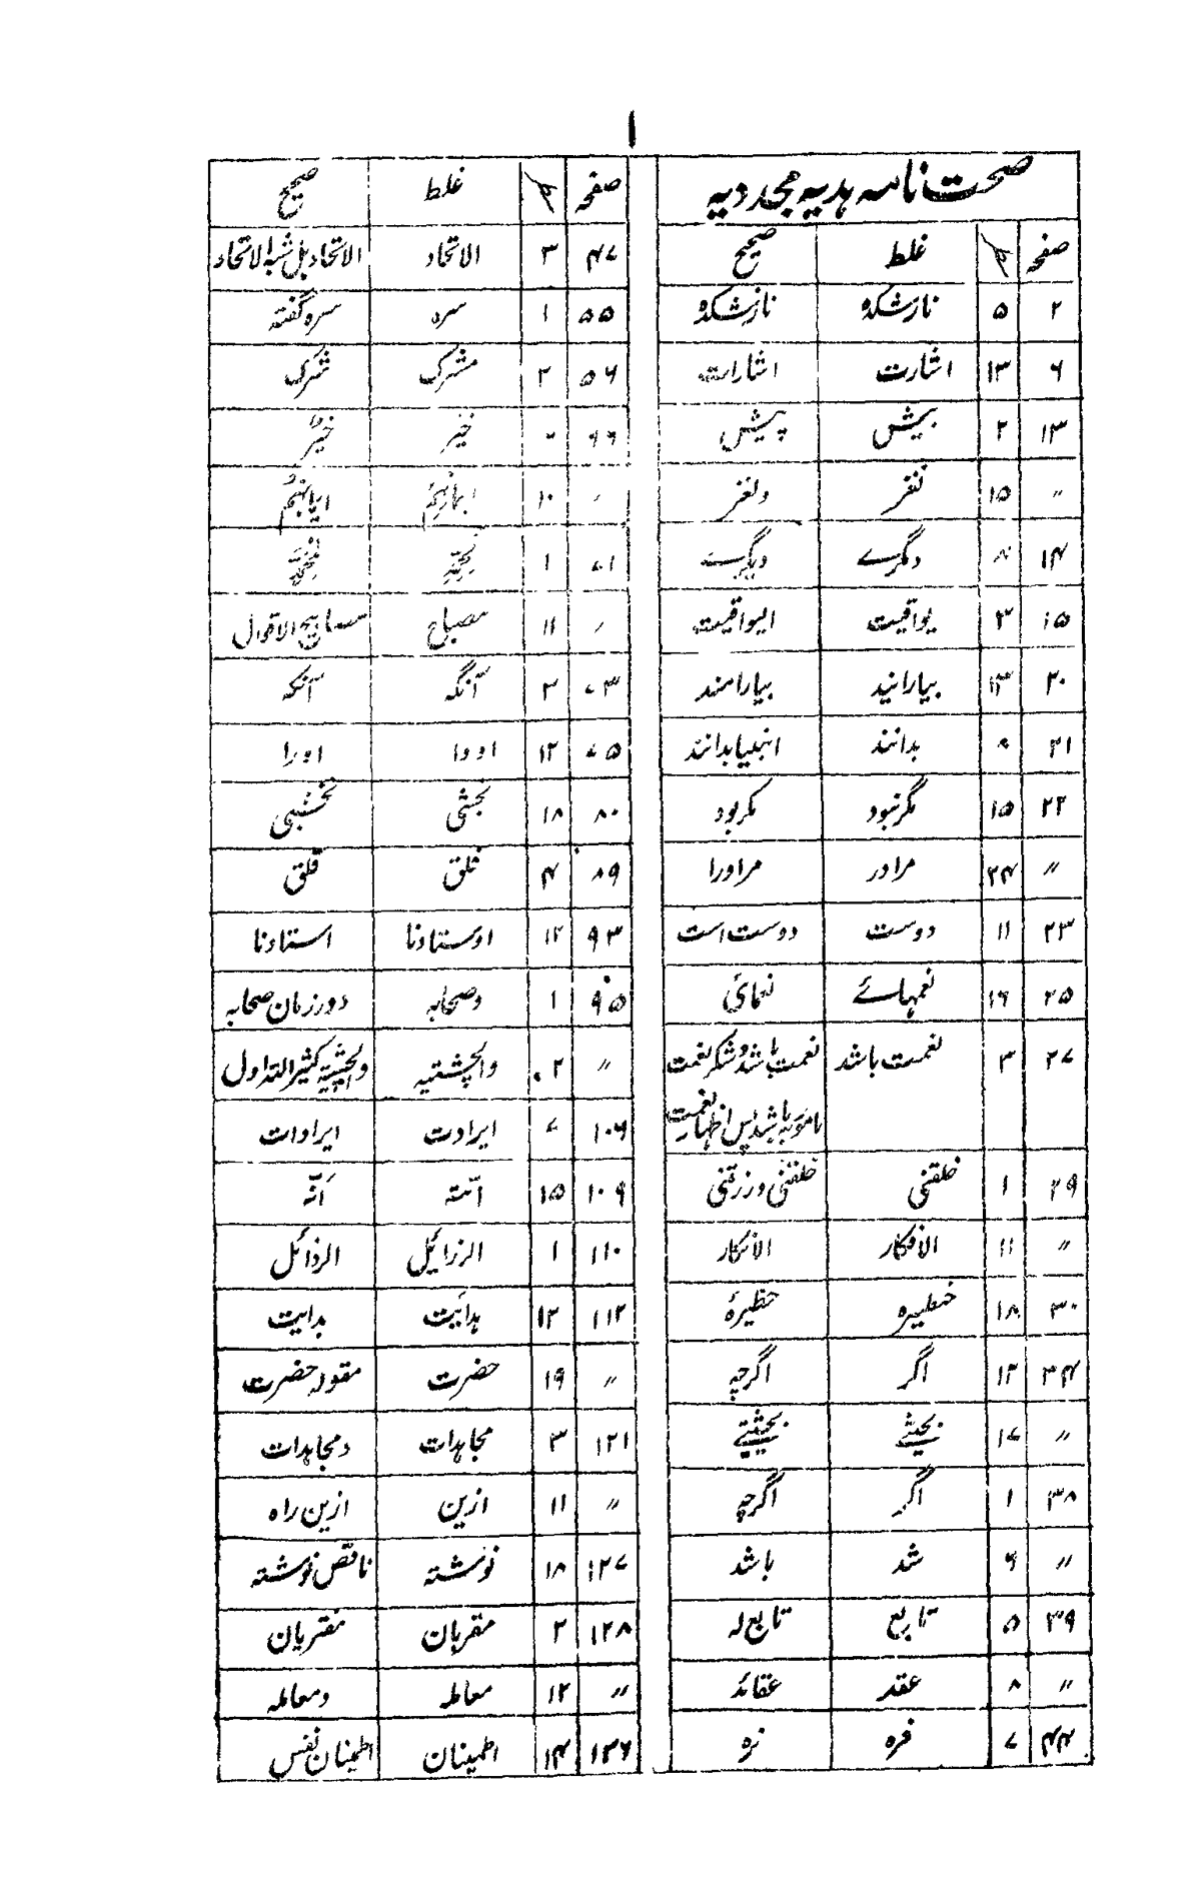 ۱
صحت نامه هدیه مجددیه
صفحہ غلط صحیح
۲ ۵ نازشکدہ نازشکدہ
۶ ۱۳ اشارت اشارات
۱۳ ۲ بیش پیش
〃 ۱۵ نغز ولغز
۱۴ ۸ دگرے دیگرے
۱۵ ۳ یواقیت الیواقیت
۲۰ ۱۳ بیارانید بیارامند
۲۱ ۸ بدانند انبیا بدانند
۲۲ ۱۵ مگر نبود مگر بود
〃 ۲۴ مرادر مر او را
۲۳ ۱۱ دوست دوست است
۲۵ ۱۶ نعمہائے نعمائ
۲۷ ۳ نعمت باشد نعمت باشد و شکر نعمت
مامور بہ باشد پس اظہار نعمت
۲۹ ۱ خلقنی خلقنی ورزقنی
〃 ۱۱ الافکار الاذکار
۳۰ ۱۸ خطیرہ حظیرۂ
۳۴ ۱۲ اگر اگرچہ
〃 ۱۷ بحیثے بحیثیتے
۳۸ ۱ اگر اگرچہ
〃 ۶ شد باشد
۳۹ ۵ تابع تابع لہ
〃 ۸ عقد عقائد
۴۴ ۷ فرہ نرہ
صفحہ غلط صحیح
۴۷ ۳ الاتحاد الاتحاد بل شبہ الاتحاد
۵۵ ۱ سرہ سرہ گفتہ
۵۶ ۲ مشرک شرک
۶۶ خیر خیر
〃 ۱۰
۷۱ ۱
〃 ۱۱ مصباح مصابیح الاقوال
۷۳ ۲ آنگہ آنکہ
۷۵ ۱۲ اووا اورا
۸۰ ۱۸ بخشی نخشبی
۸۹ ۴ خلق قلق
۹۳ ۱۲ اوستادنا استادنا
۹۵ ۱ وصحابہ ودرزمان صحابہ
〃 ۲۰ والچشتیہ والچشتیہ کثیر التداول
۱۰۶ ۷ ایرادت ایرادات
۱۰۹ ۱۵ انتہ انّہ
۱۱۰ ۱ الزرائل الرذائل
۱۱۲ ۱۲ ہدایت بدایت
〃 ۱۹ حضرت مقولہ حضرت
۱۲۱ ۳ مجاہدات ومجاہدات
〃 ۱۱ ازین ازین راہ
۱۲۷ ۱۸ نوشتہ ناقص نوشتہ
۱۲۸ ۲ مقربان مفتریان
〃 ۱۲ معاملہ ومعاملہ
۱۳۶ ۱۴ اطمینان اطمینان نفس